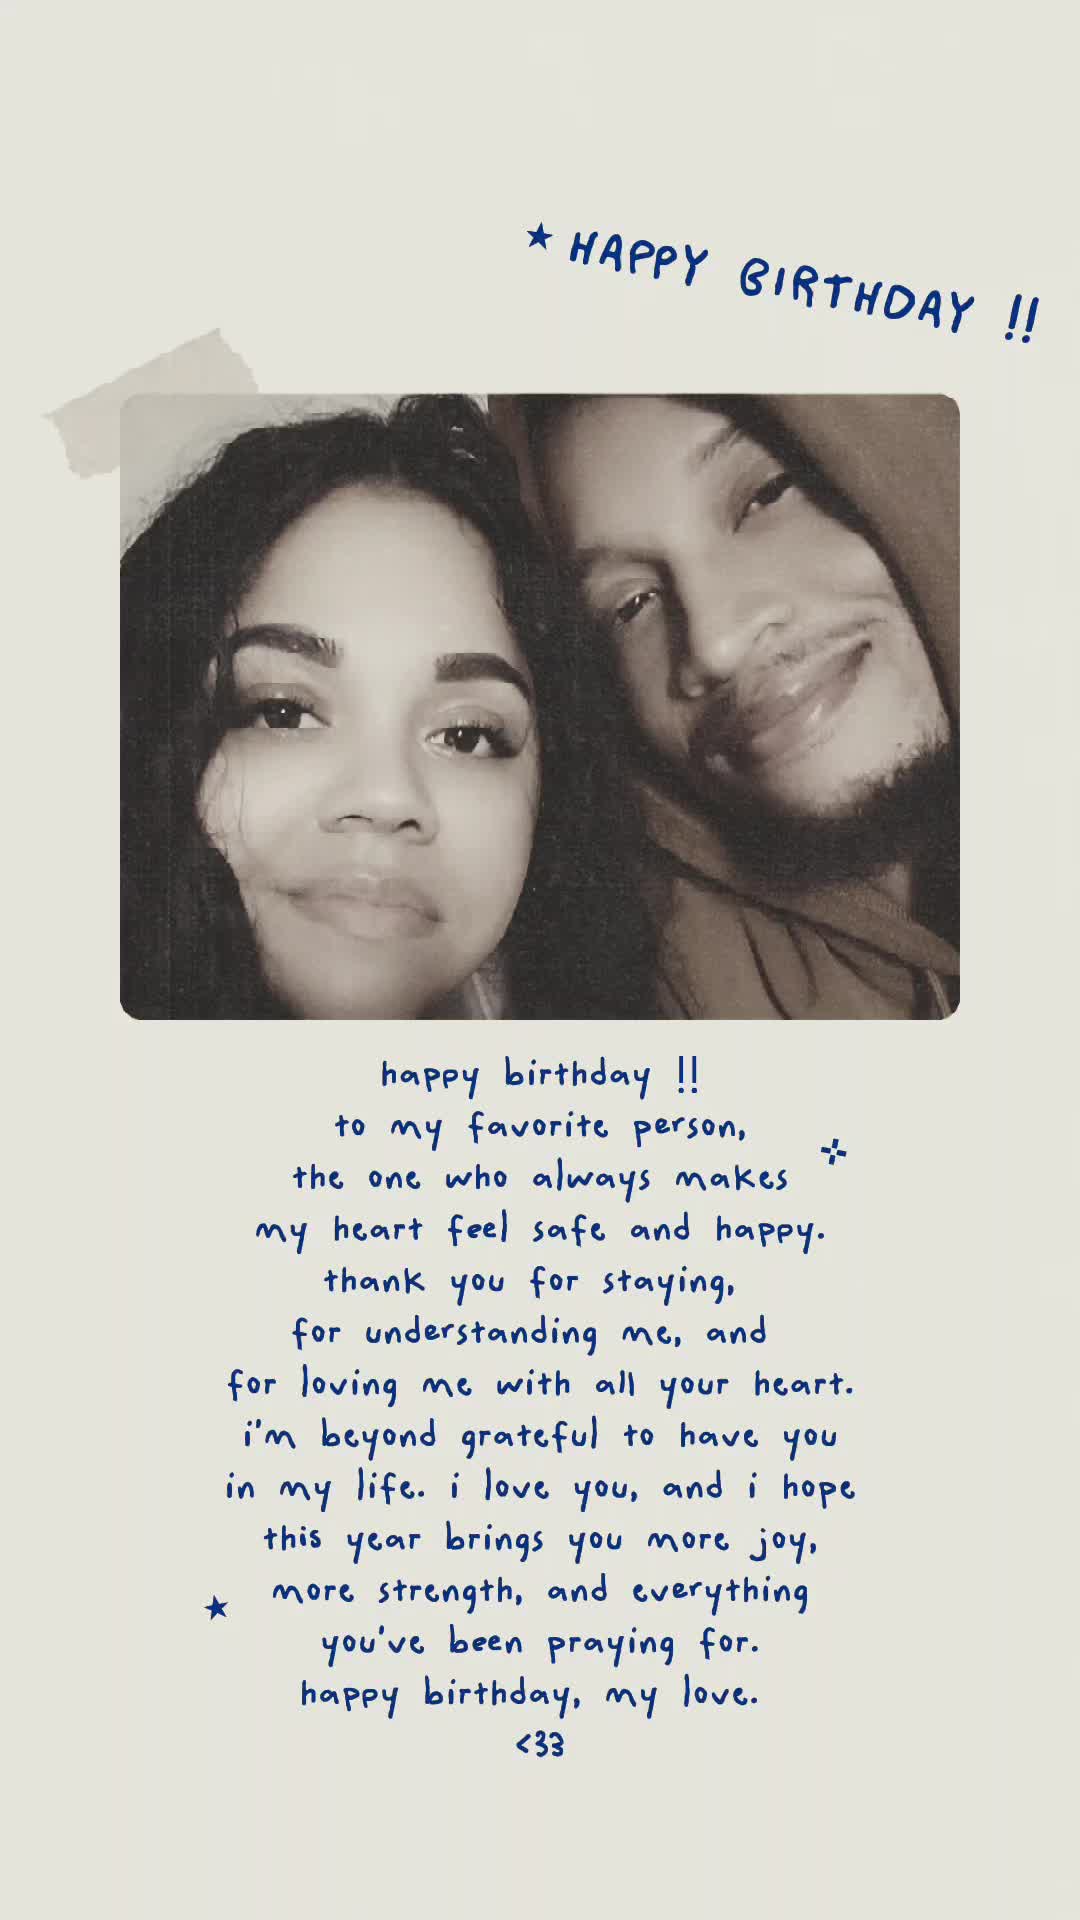 HAPPY BIRTHDAY !!
happy birthday !!
to my favorite person,
the one who always makes
my heart feel safe and happy.
thank you for staying,
for understanding me, and
for loving me with all your heart.
i'm beyond grateful to have you
in my life. i love you, and i hope
this year brings you more joy,
more strength, and everything
you've been praying for.
happy birthday, my love.
<33